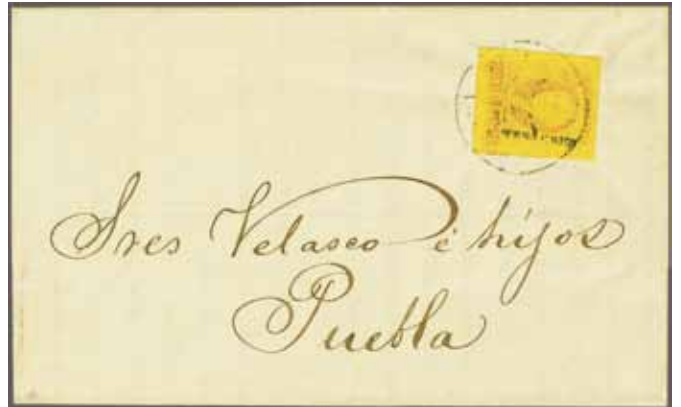 Sres Velasco é hijos
Puebla